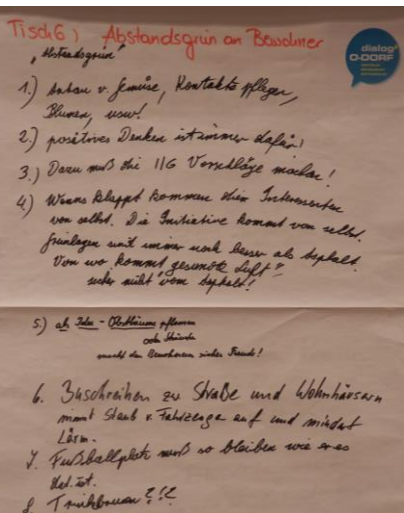 Tisch 6) Abstandsgrün an Bewohner
"Abstandsgrün"
dialog
O-DORF
1.) Anbau v. Gemüse, Kontakte pflegen,
Blumen, usw!
2.) positives Denken ist immer dafür!
3.) Dazu muß die IIG Vorschläge machen!
4) Wenns klappt kommen die Interessenten
von selbst. Die Initiative kommt von selbst.
Grünlagen sind immer noch besser als Asphalt.
Von wo kommt gesunde Luft?
sicher nicht vom Asphalt!
5.) als Idee - Obstbäume pflanzen
oda Sträucher
macht den Bewohnern sicher Freude!
6. Buschreihen zu Straße und Wohnhäusern
nimmt Staub v. Fahrzeuge auf und mindert
Lärm.
7. Fußballplatz muß so bleiben wie er es
ist.
8. Trinkbrunnen?!?